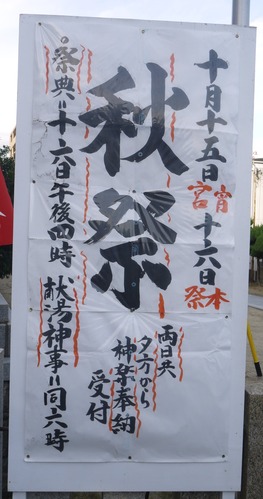 十月十五日宵宮
十六日本祭
秋祭
両日共
夕方から
神楽奉納
受付
祭典＝十六日午後四時
献湯神事＝同六時